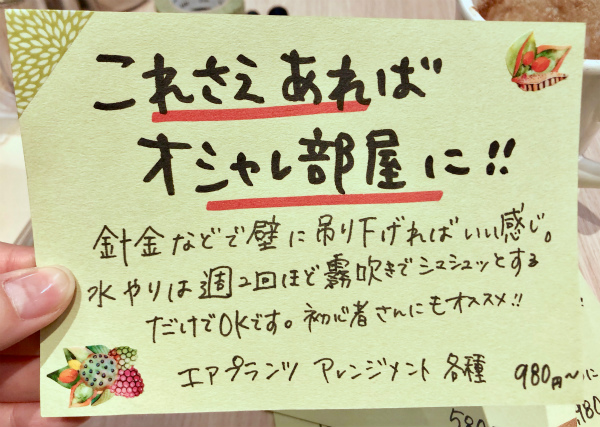 これさえあれば
オシャレ部屋に!!
針金などで壁に吊り下げればいい感じ。
水やりは週2回ほど霧吹きでシュシュッとする
だけでOKです。初心者さんにもオススメ!!
エアプランツ アレンジメント 各種 980円〜
580
980